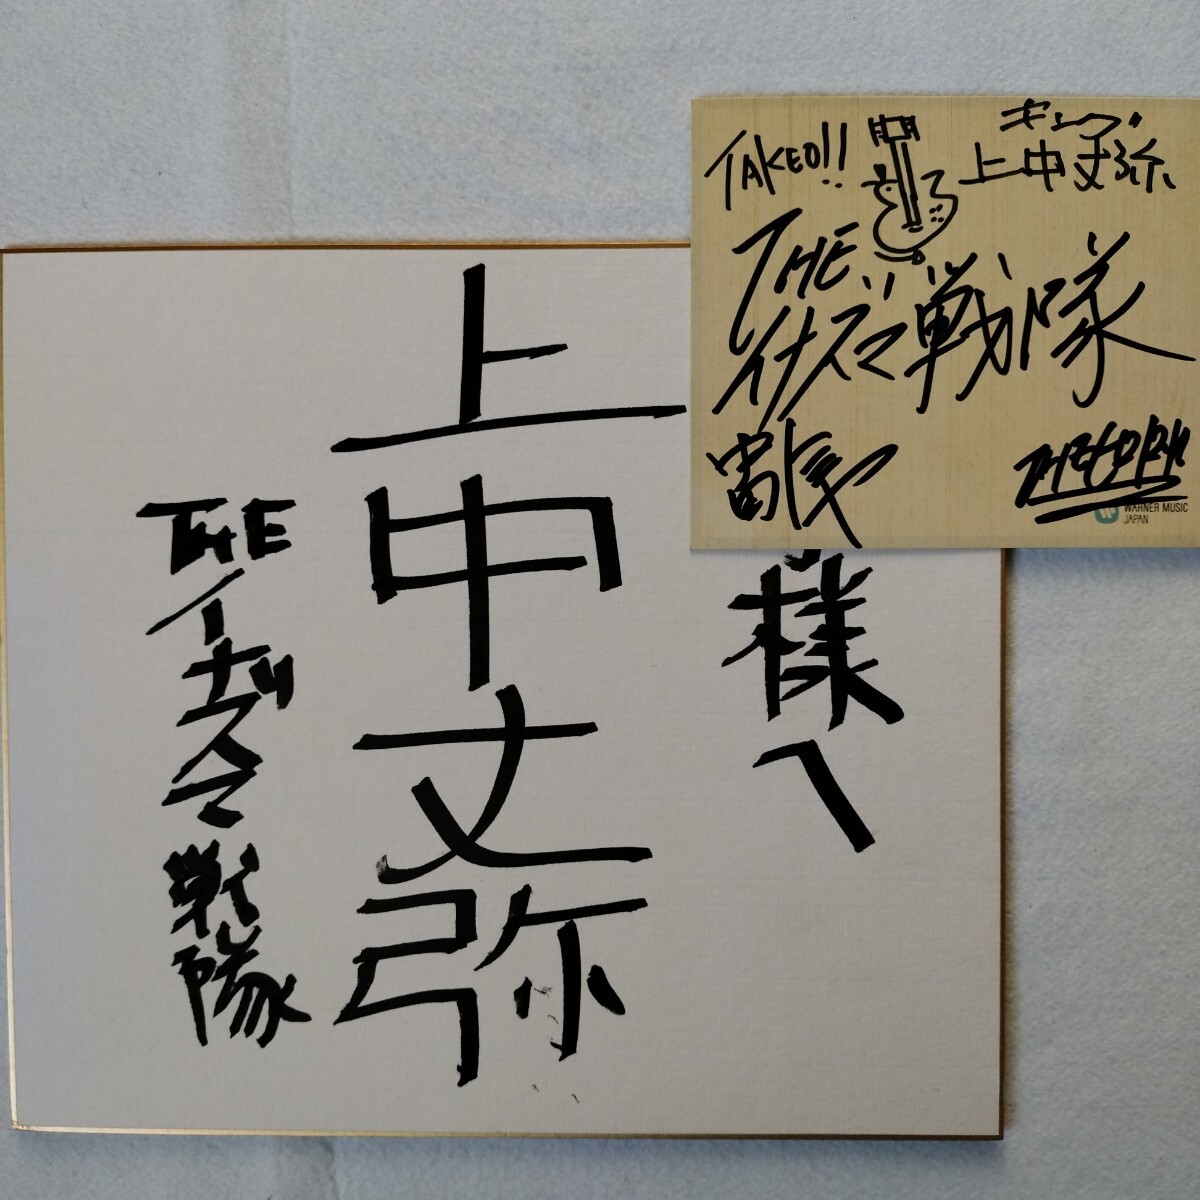 様へ
上中丈弥
THE イナズマ戦隊
TAKEO!!
上中丈弥
THE
イナズマ戦隊
WARNER MUSIC
JAPAN